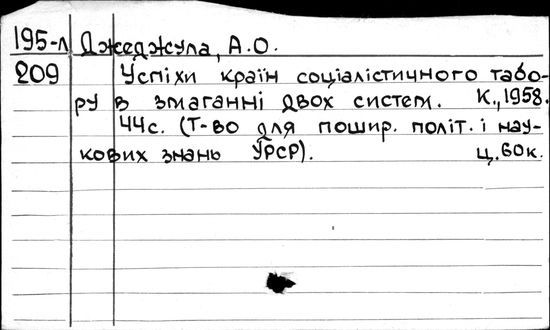 195-л Джеджула, А.О.
209 Успіхи країн соціалістичного табо-
ру в змаганні двох систем. К., 1958.
44с. (Т-во для пошир. політ. і нау-
кових знань УРСР). ц. 60к.